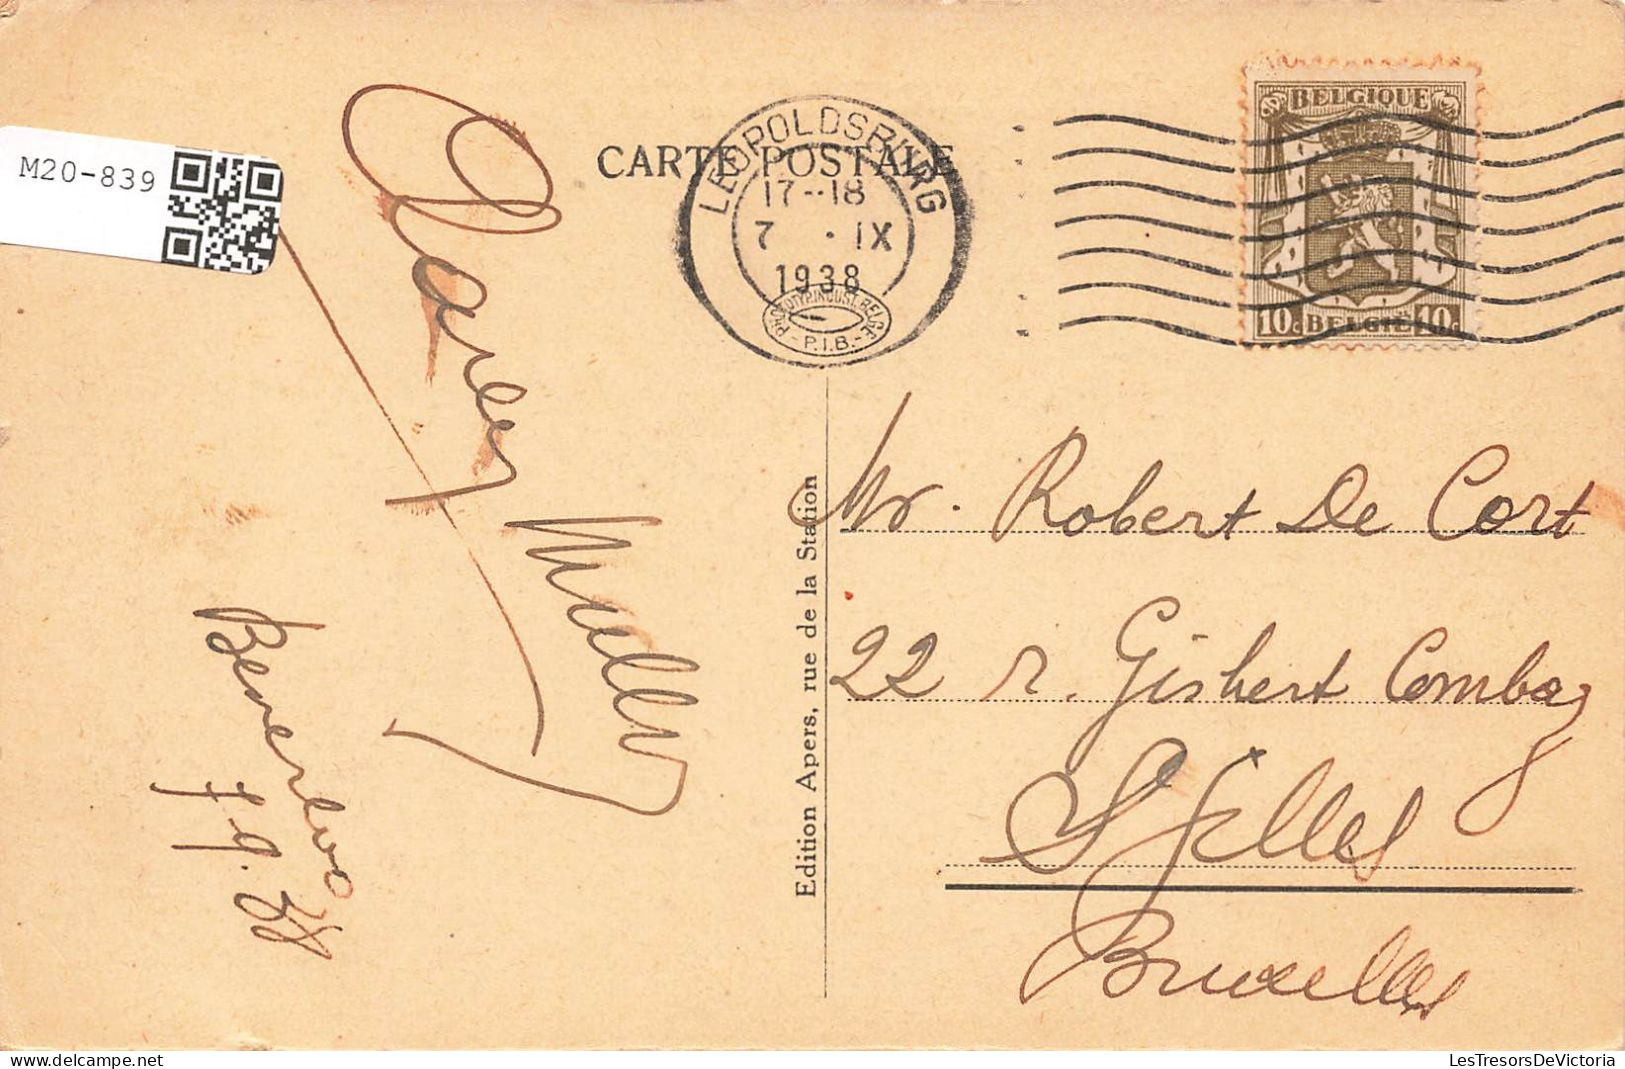 M20-839
CARTE POSTALE
LEOPOLDSBURG
17-18
7 . IX
1938
PHOTOTYP. INDUST. BELGE
- P.I.B. -
BELGIQUE
10c BELGIË 10c
Beverloo
7.9.38
Edition Apers, rue de la Station
Mr. Robert De Cort
22 r. Gisbert Combaz
St Gilles
Bruxelles
LesTresorsDeVictoria